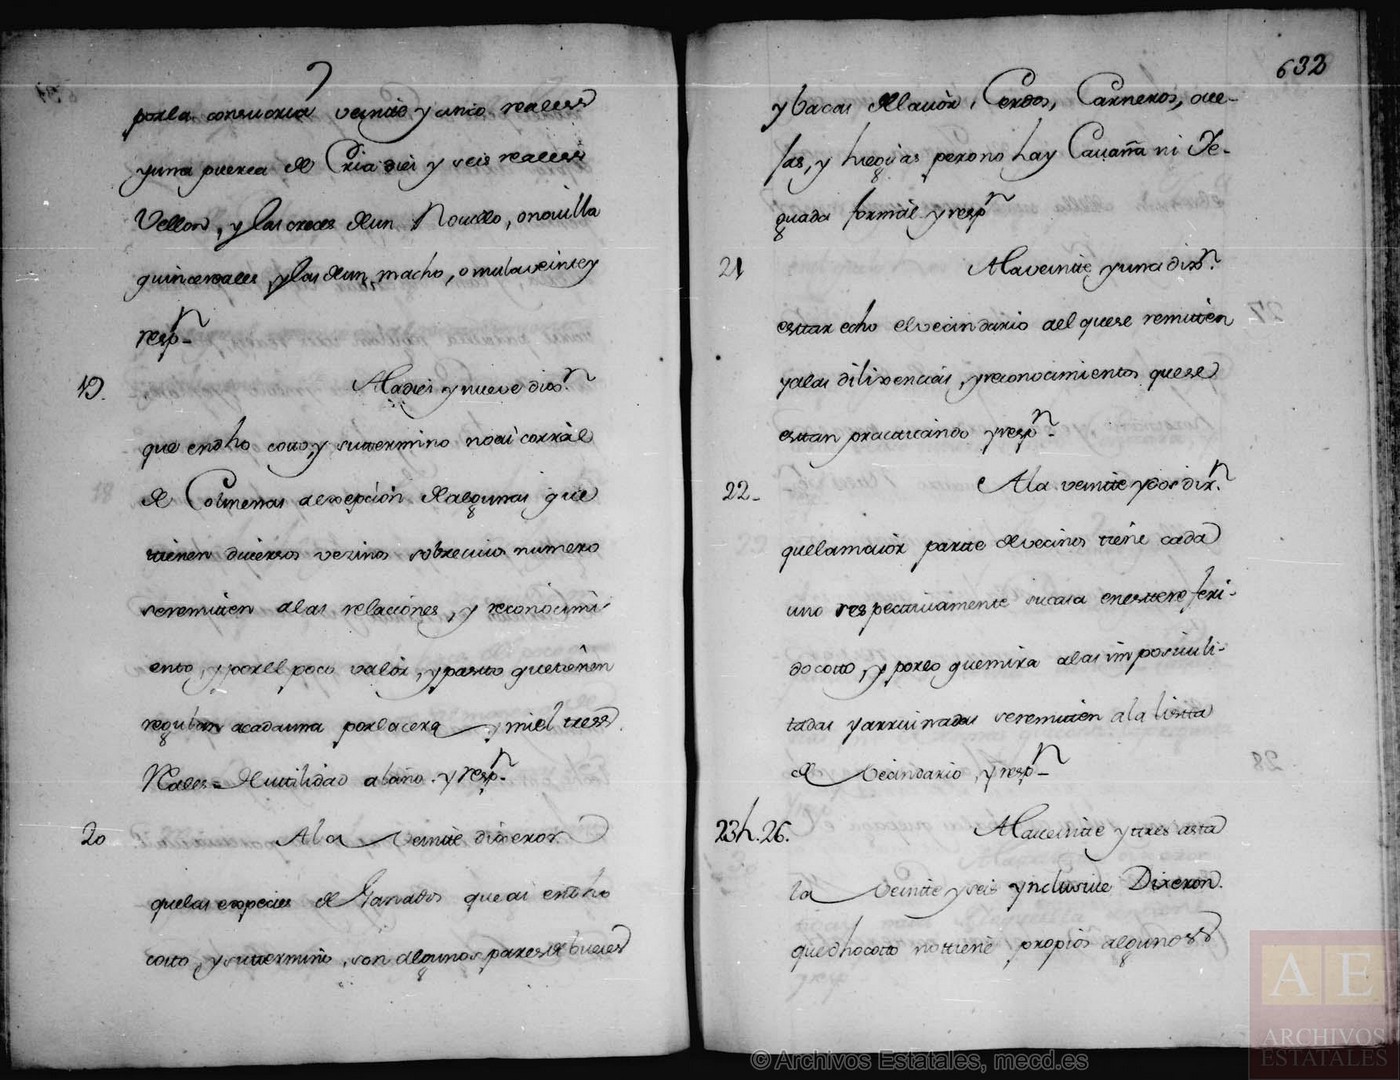 por la consitoria veintte y cinco reales
y una puerca de Cria diez y seis reales
Vellon, y las creces de un Novillo, o novilla
quince reales y las de un macho, o mula veinte y
resp.n
19. A la diez y nueve dix.n
que en dho coto, y su ttermino no ai corral
de Colmenas a exepcion de algunas que
ttienen diversos vezinos sobre cuio numero
se remitten a las relaciones, y reconocimi-
ento, y por el poco valor, y pasto que tienen
regulan a cada una por la cera y miel tres
Reales de utilidad al año y resp.n
20 A la Veintte dixeron
que las expecies de Ganados que ai en dho
coto, y su ttermino, son algunos pares de bueies
632
y bacas de lavor, Cerdos, Carneros, ove-
jas, y hieguas pero no hay Cavaña ni Ye-
guada formal y resp.n
21 A la veintte y una dix.n
esttar echo el vecindario al que se remitten
y a las dilixencias, y reconocimientos que se
esttan practticando y resp.n
22 A la veintte y dos dix.n
que la maior partte de vecinos tiene cada
uno respectivamente su casa en estte referi-
do coto, y por lo que mira a las imposivili-
tadas y arruinadas se remitten a la listta
de Vecindario, y resp.n
23 h. 26. A la veintte y ttres asta
la Veintte y seis ynclusive Dixeron.
que dho coto no ttiene propios algunos
© Archivos Estatales, mecd.es
A E
ARCHIVOS
ESTATALES